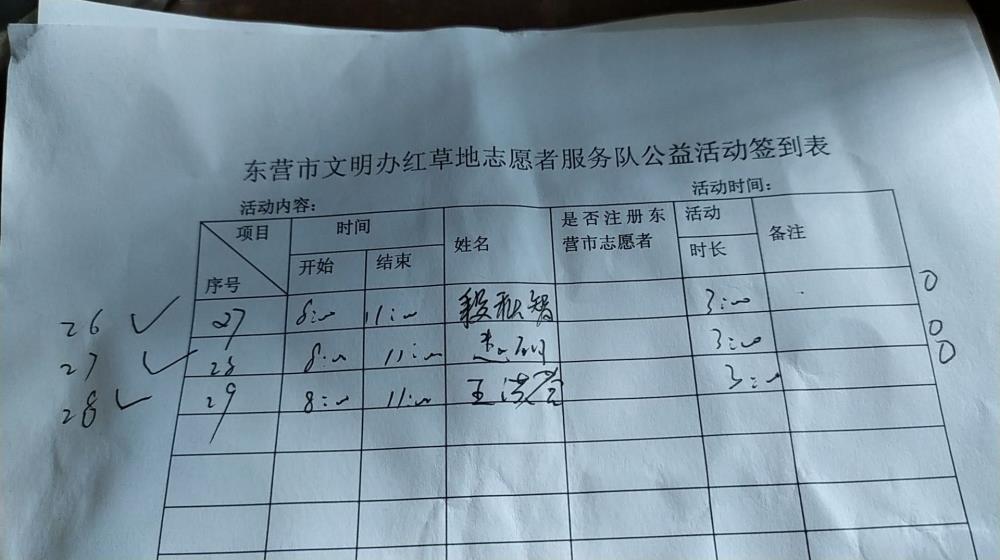 东营市文明办红草地志愿者服务队公益活动签到表
活动内容: 活动时间:
项目 序号 时间 开始 结束 姓名 是否注册东营市志愿者 活动时长 备注
26 ✓ 27 8:00 11:00 3:00 0
27 ✓ 28 8:00 11:00 3:00 0
28 ✓ 29 8:00 11:00 王洪营 3:00 0